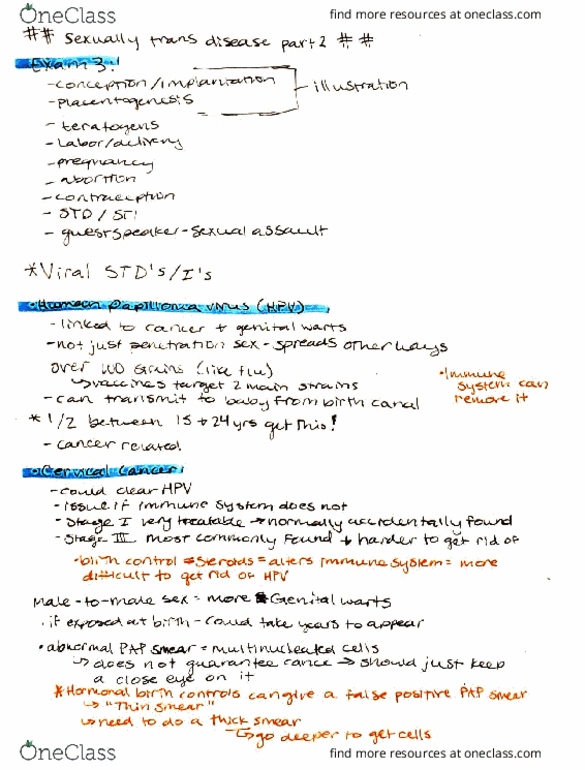 OneClass
find more resources at oneclass.com
## Sexually trans disease part 2 ##
Exam 3!
-conception/implantation
-placentogenesis
illustration
-teratogens
-Labor/delivery
-pregnancy
-abortion
-contraception
-STD/STI
-guest speaker-sexual assault
*Viral STD's/I's
•Human Papilloma virus (HPV)
-linked to cancer + genital warts
-not just penetration sex-spreads other ways
over 100 strains (like flu)
↳vaccines target 2 main strains
•Immune
system can
remove it
-can transmit to baby from birth canal
* 1/2 between 15 + 24 yrs get this!
-cancer related.
•Cervical Cancer:
-could clear HPV
-issue if immune system does not
-Stage I very treatable → normally accidentally found
-Stage III most commonly found + harder to get rid of
•birth control = steroids = alters immune system = more
difficult to get rid of HPV
Male-to-male sex = more Genital warts
•if exposed at birth-could take years to appear
•abnormal PAP smear = multinucleated cells
↳does not guarantee cance → should just keep
a close eye on it
*Hormonal birth controls can give a false positive PAP smear
↳"Thin smear"
↳need to do a thick smear
↳go deeper to get cells
OneClass
find more resources at oneclass.com